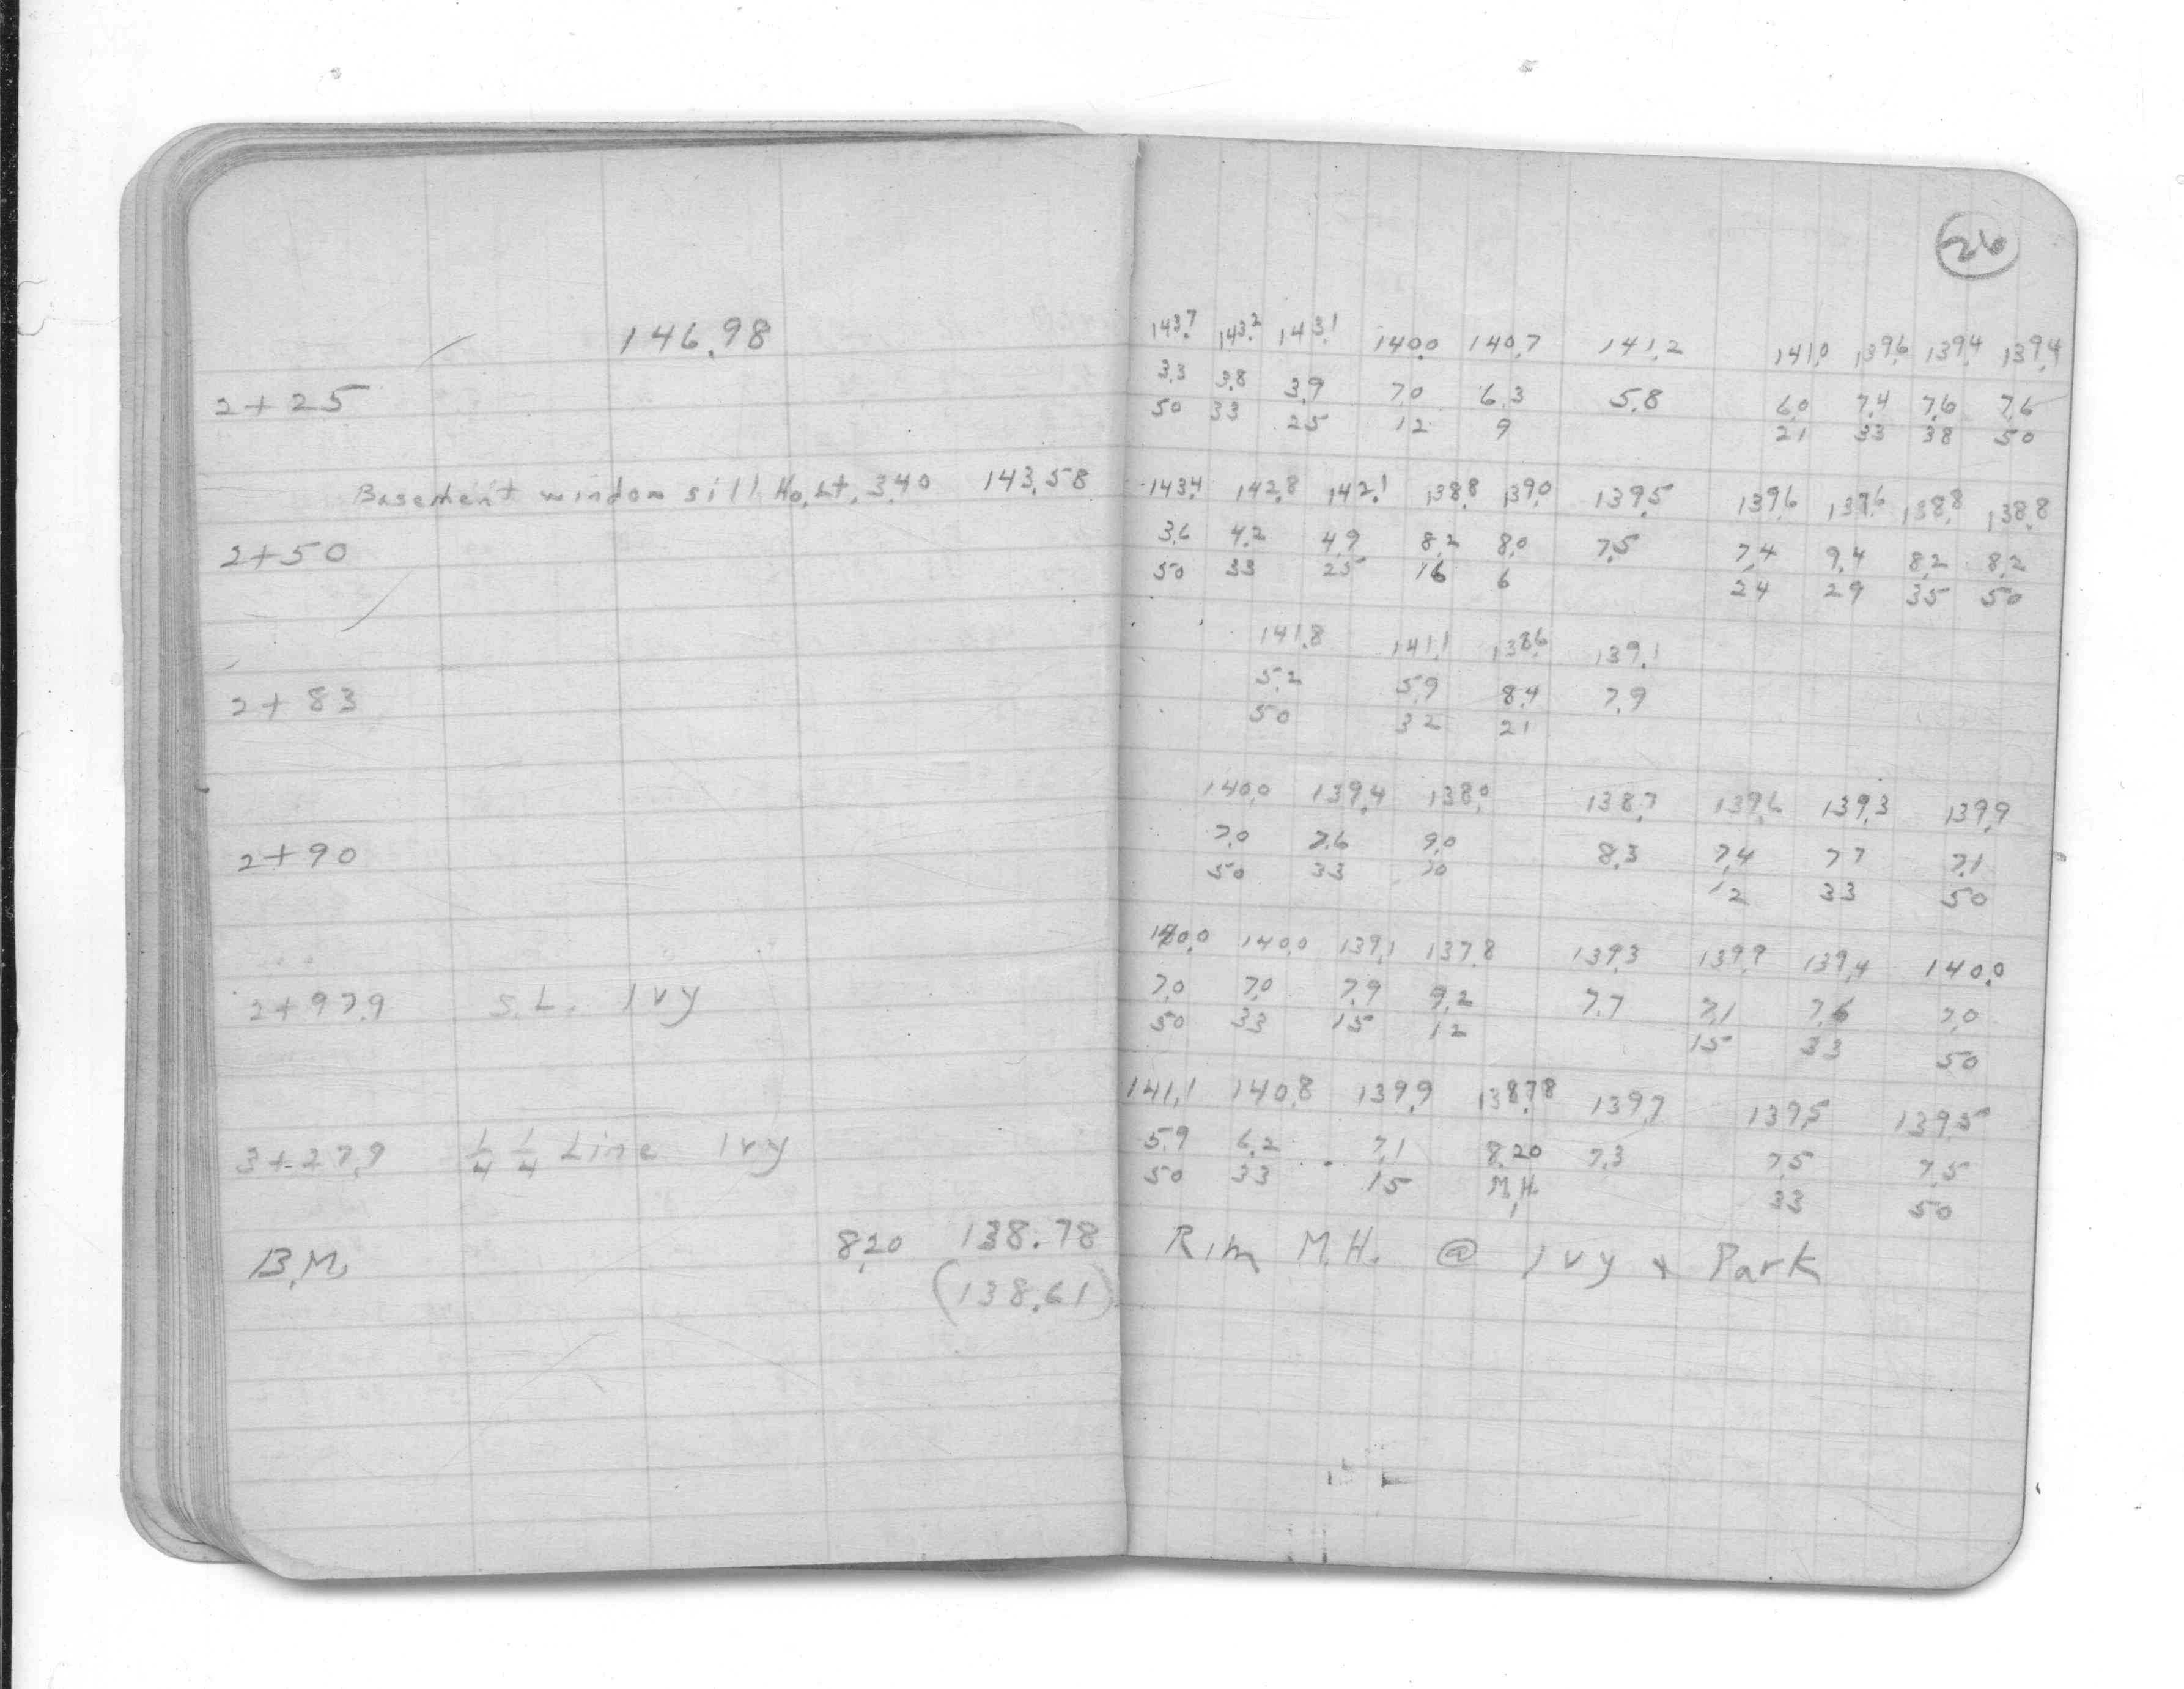 26
146.98
143.7 143.2 143.1 140.0 140.7 141.2 141.0 139.6 139.4 139.4
2+25 3.3 3.8 3.9 7.0 6.3 5.8 6.0 7.4 7.6 7.6
50 33 25 12 9 21 33 38 50
Basement window sill Ho. Lt. 3.40 143.58 143.4 142.8 142.1 138.8 139.0 139.5 139.6 137.6 138.8 138.8
2+50 3.6 4.2 4.9 8.2 8.0 7.5 7.4 9.4 8.2 8.2
50 33 25 16 6 24 29 35 50
141.8 141.1 138.6 139.1
2+83 5.2 5.9 8.4 7.9
50 32 21
140.0 139.4 138.0 138.7 139.6 139.3 139.9
2+90 7.0 7.6 9.0 8.3 7.4 7.7 7.1
50 33 12 33 50
140.0 140.0 139.1 137.8 139.3 139.9 139.4 140.0
2+97.9 S.L. Ivy 7.0 7.0 7.9 9.2 7.7 7.1 7.6 7.0
50 33 15 12 15 33 50
141.1 140.8 139.9 138.78 139.7 139.5 139.5
3+27.9 1/4 1/4 Line Ivy 5.9 6.2 7.1 8.20 7.3 7.5 7.5
50 33 15 M.H. 33 50
B.M. 8.20 138.78 Rim M.H. @ Ivy + Park
(138.61)